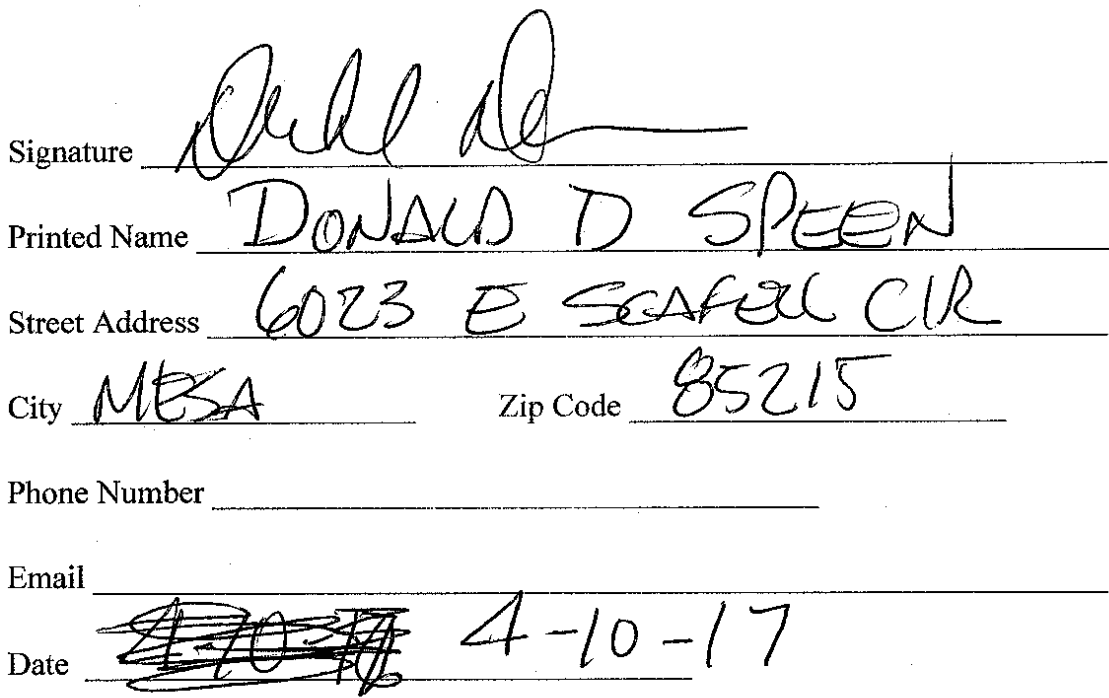 Signature
Printed Name DONALD D SPEEN
Street Address 6023 E SCAFELL CIR
City MESA Zip Code 85215
Phone Number
Email
Date 4-10-17